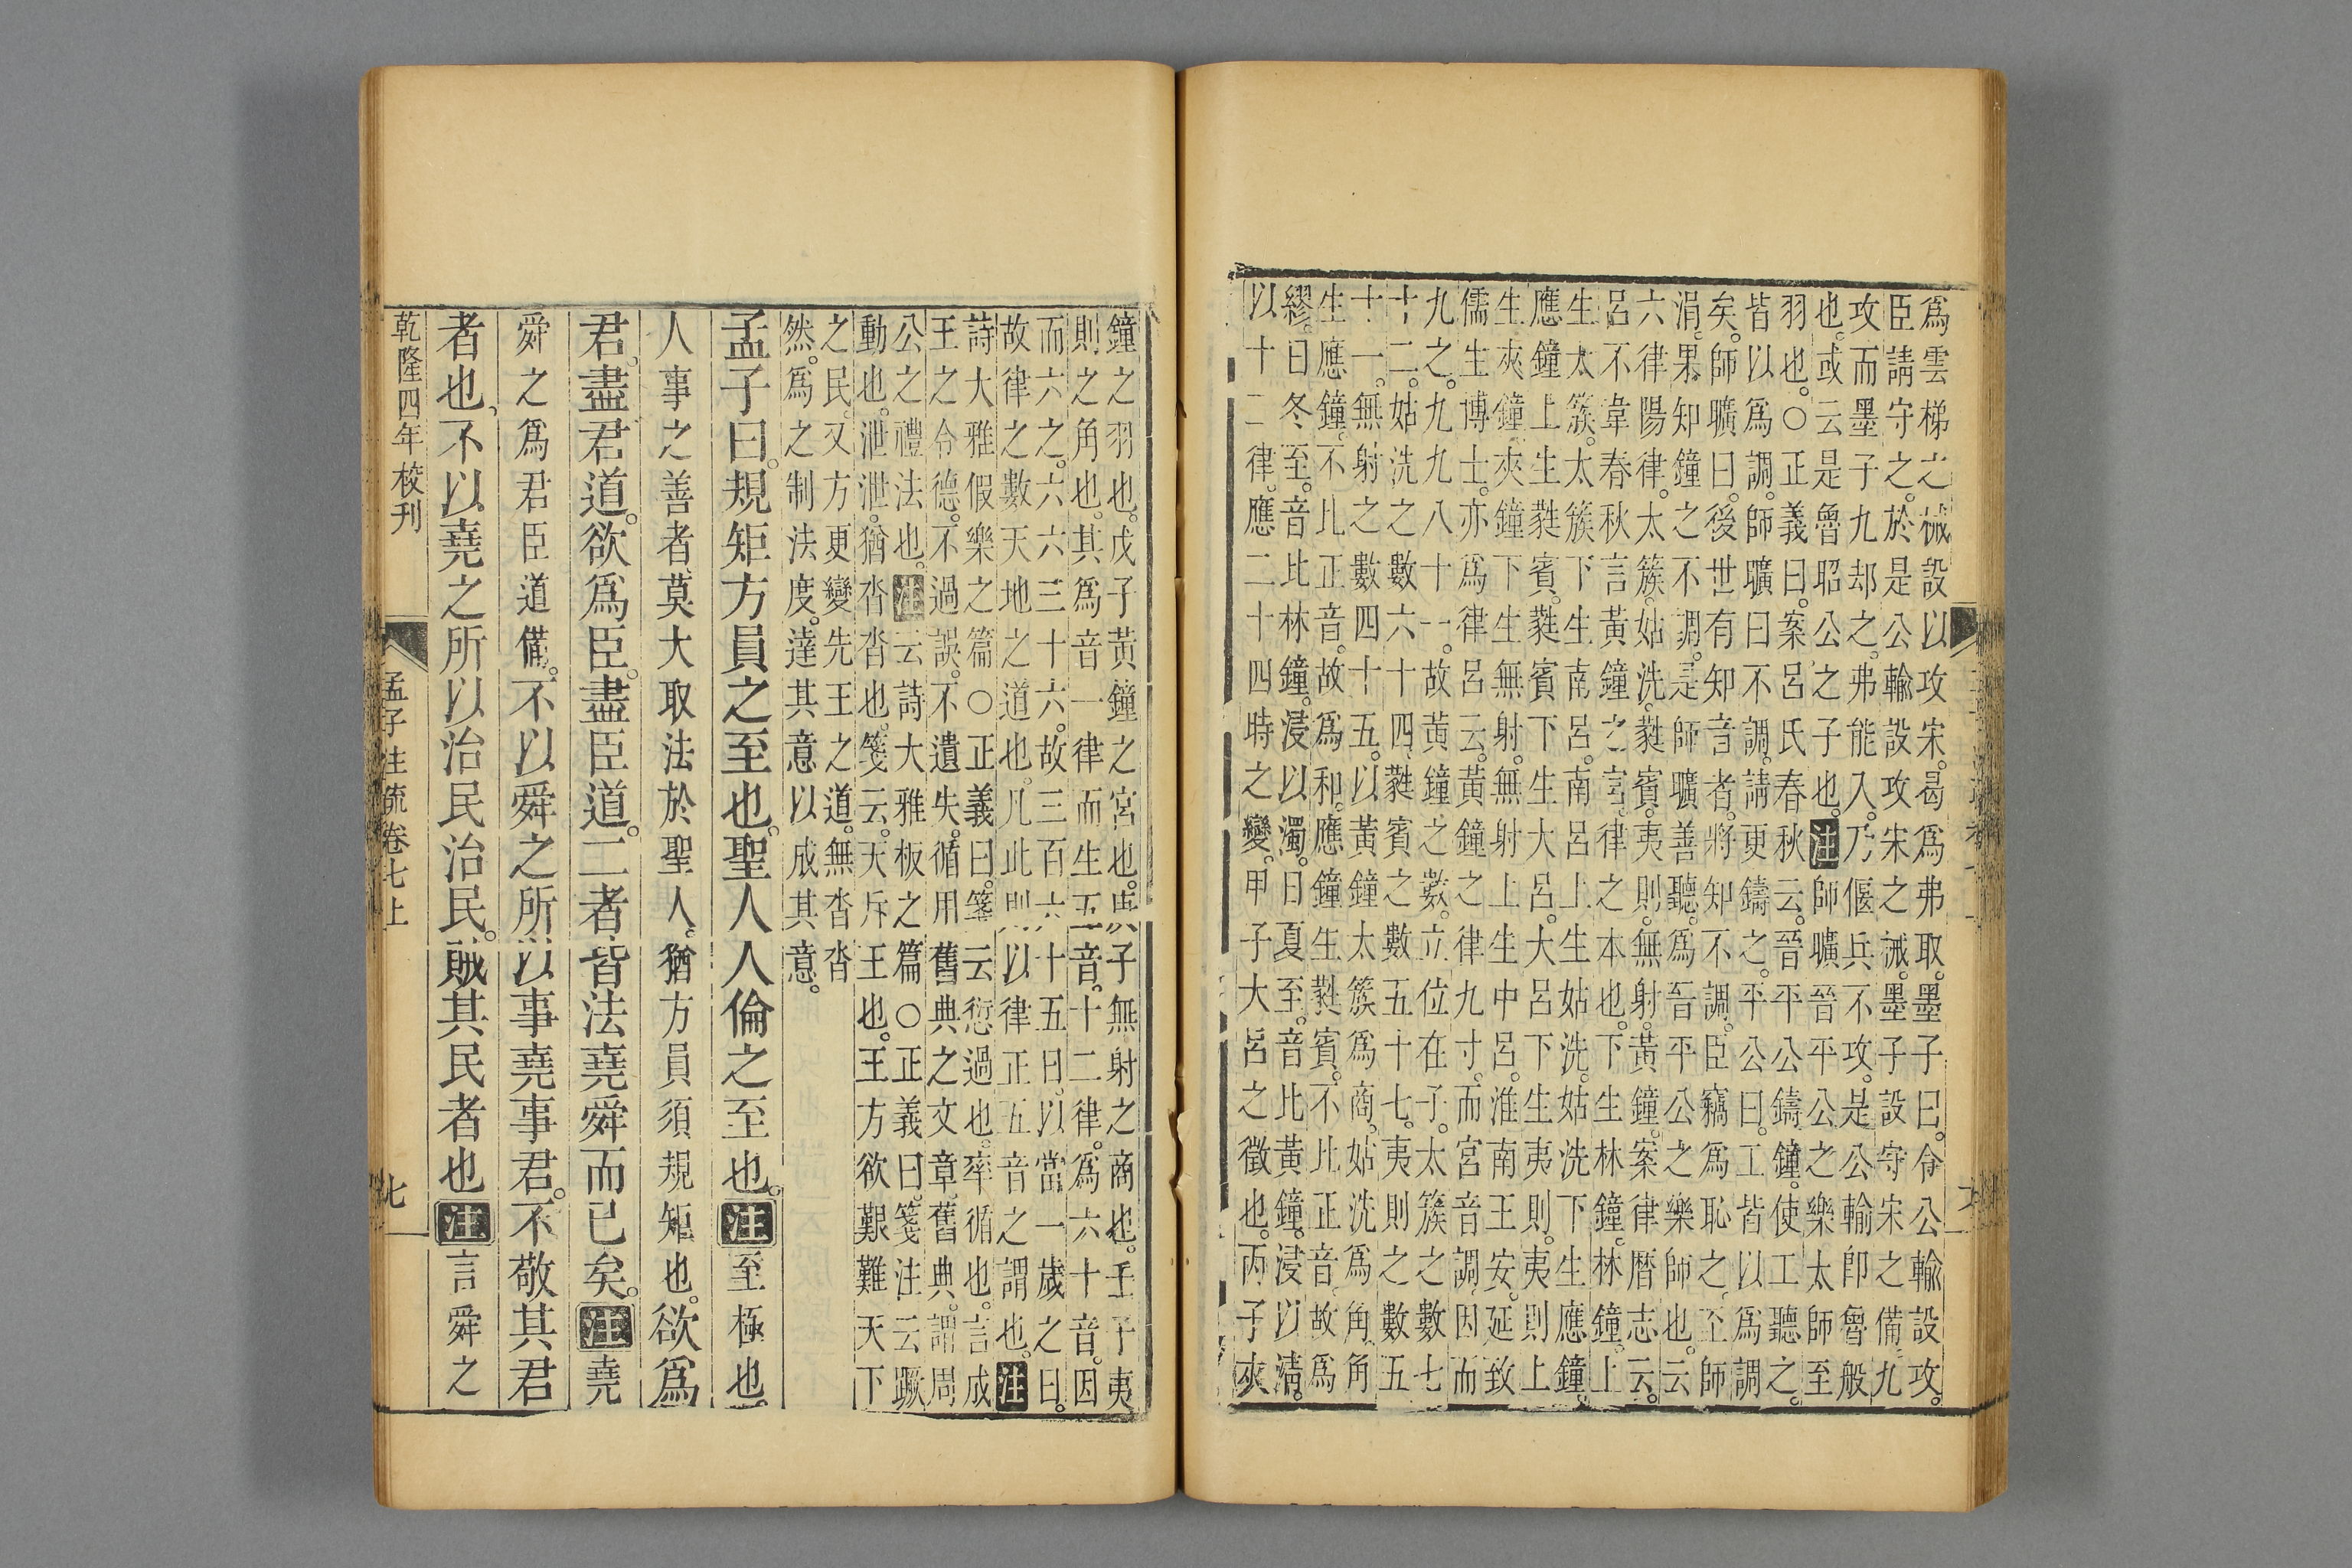 爲雲梯之械設以攻宋。曷爲弗取。墨子曰。令公輸設攻。
臣請守之。於是公輸設攻宋之械。墨子設守宋之備。九
攻而墨子九却之。弗能入。乃偃兵不攻。是公輸卽魯般
也。或云是魯昭公之子也。注師曠晉平公之樂太師至
羽也。○正義曰。案呂氏春秋云。晉平公鑄鐘。使工聽之。
皆以爲調。師曠曰不調。請更鑄之。平公曰。工皆以爲調
矣。師曠曰。後世有知音者。將知不調。臣竊爲恥之。至師
涓。果知鐘之不調。是師曠善聽。爲晉平公之樂師也。云
六律陽律。太簇。姑洗。蕤賓。夷則。無射。黃鐘。案律曆志云。
呂不韋春秋言黃鐘之宮。律之本也。下生林鐘。林鐘上
生太簇。太簇下生南呂。南呂上生姑洗。姑洗下生應鐘。
應鐘上生蕤賓。蕤賓下生大呂。大呂下生夷則。夷則上
生夾鐘。夾鐘下生無射。無射上生中呂。淮南王安。延致
儒生博士。亦爲律呂云。黃鐘之律九寸。而宮音調。因而
九之。九九八十一。故黃鐘之數。立位在子。太簇之數七
十二。姑洗之數六十四。蕤賓之數五十七。夷則之數五
十一。無射之數四十五。以黃鐘太簇爲商。姑洗爲角。角
生應鐘。不比正音。故爲和。應鐘生蕤賓。不比正音。故爲
繆。日冬至。音比林鐘。浸以濁。日夏至。音比黃鐘。浸以清。
以十二律。應二十四時之變。甲子大呂之徵也。丙子夾
鐘之羽也。戊子黃鐘之宮也。庚子無射之商也。壬子夷
則之角也。其爲音一律而生五音。十二律。爲六十音。因
而六之。六六三十六。故三百六十五日。以當一歲之日。
故律之數。天地之道也。凡此則以律正五音之謂也。注
詩大雅假樂之篇○正義曰。箋云愆過也。率循也。言成
王之令德。不過誤。不遺失。循用舊典之文章。舊典。謂周
公之禮法也。注云詩大雅板之篇○正義曰。箋注云蹶
動也。泄泄。猶沓沓也。箋云。天斥王也。王方欲艱難天下
之民。又方更變先王之道。無沓沓
然。爲之制法度。達其意以成其意。
孟子曰。規矩方員之至也。聖人人倫之至也。注至極也。
人事之善者。莫大取法於聖人。猶方員須規矩也。欲爲
君。盡君道。欲爲臣。盡臣道。二者皆法堯舜而已矣。注堯
舜之爲君臣道備。不以舜之所以事堯事君。不敬其君
者也。不以堯之所以治民治民。賊其民者也注言舜之
乾隆四年校刊
孟子注疏卷七上